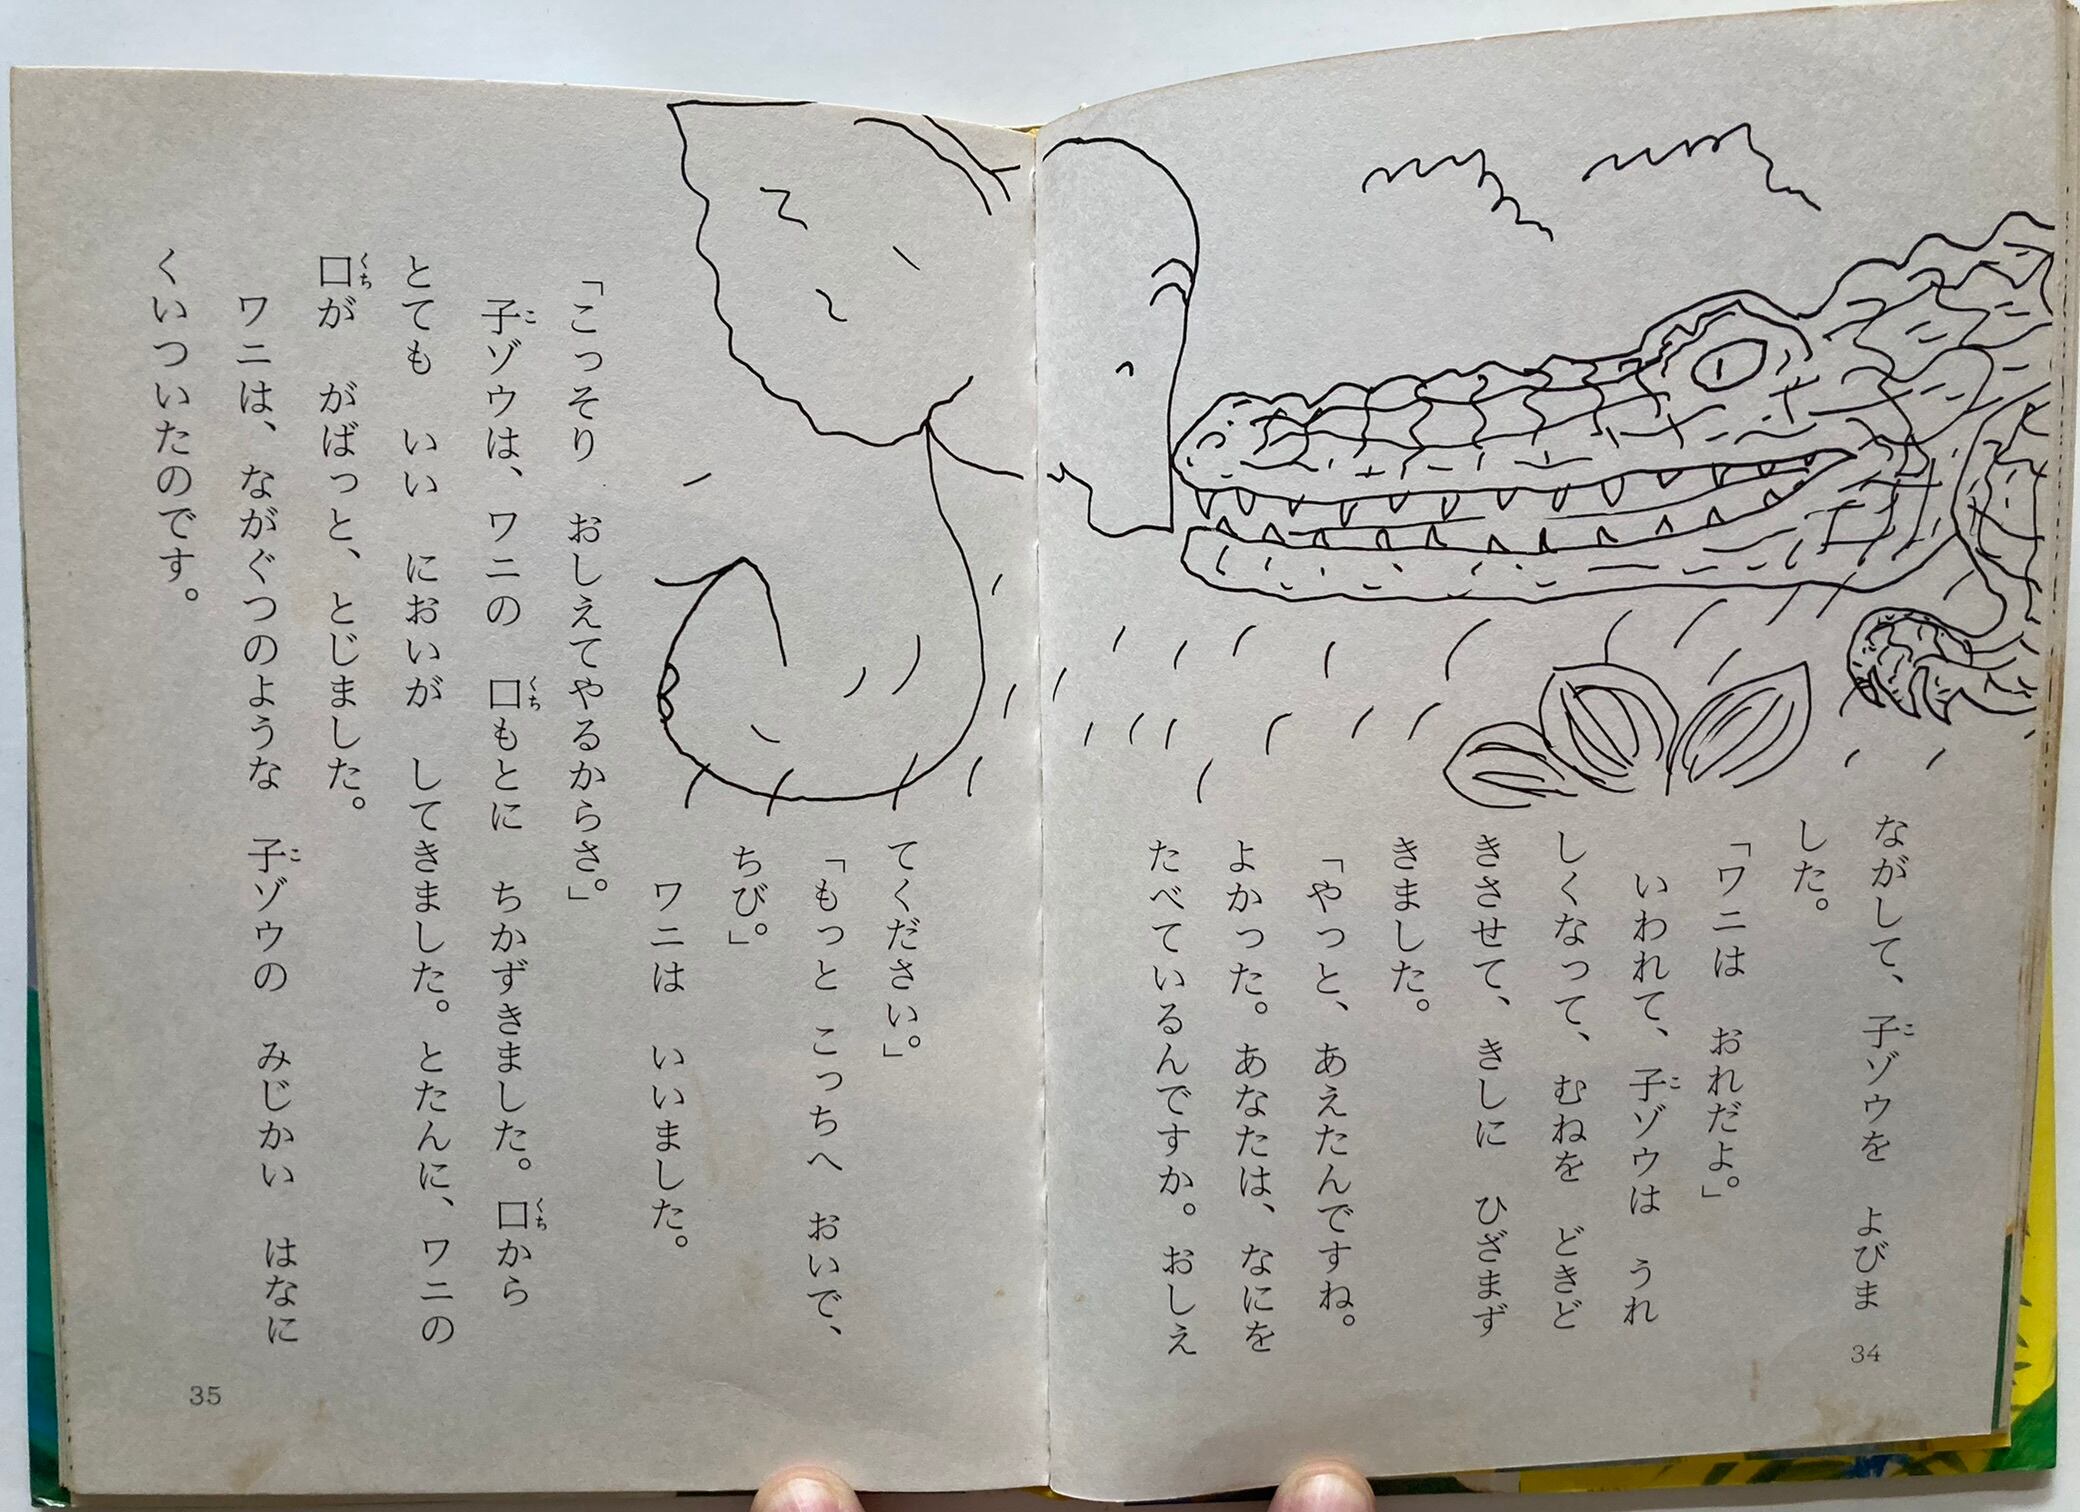 ながして、子ゾウを　よびま
した。
「ワニは　おれだよ。」
いわれて、子ゾウは　うれ
しくなって、むねを　どきど
きさせて、きしに　ひざまず
きました。
「やっと、あえたんですね。
よかった。あなたは、なにを
たべているんですか。おしえ
34
てください。」
「もっと　こっちへ　おいで、
ちび。」
ワニは　いいました。
「こっそり　おしえてやるからさ。」
子ゾウは、ワニの　口もとに　ちかずきました。口から
とても　いい　においが　してきました。とたんに、ワニの
口が　がばっと、とじました。
ワニは、ながぐつのような　子ゾウの　みじかい　はなに
くいついたのです。
35